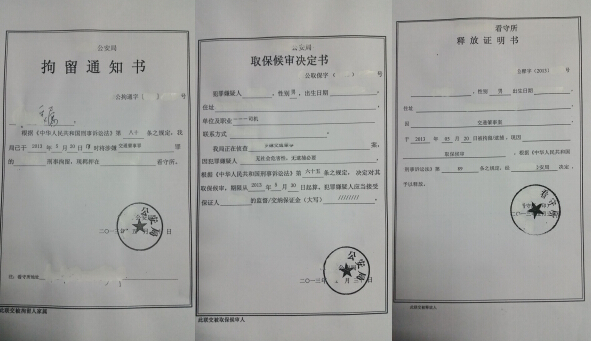 公安局
拘留通知书
公刑通字 号
根据《中华人民共和国刑事诉讼法》第 八十 条之规定，我
局已于 2013 年 5 月 20 日 时将涉嫌 交通肇事罪
罪的 刑事拘留，现羁押在 看守所。
公安局
二〇一三 月 日
注：看守所地址
此联交被拘留人家属
公安局
取保候审决定书
公取保字（ ） 号
犯罪嫌疑人 ，性别 男 ，出生日期
住址
单位及职业 司机
联系方式
我局正在侦查 案，
因犯罪嫌疑人 无社会危害性，无逮捕必要
根据《中华人民共和国刑事诉讼法》第 六十五 条之规定，决定对其
取保候审，期限从 2013 年 5 月 30 日起算。犯罪嫌疑人应当接受
保证人 的监督/交纳保证金（大写） /////////
公安局
二〇一三年 月三十日
此联交被取保候审人
看守所
释放证明书
（2013） 号
，性别 男 出生日期
住址
交通肇事案
于 2013 年 05 月 20 日被拘留/逮捕，现因
取保候审 ，根据《中华人民共和国
刑事诉讼法》第 89 条之规定，经 公安局 决定，
予以释放。
看守所
二〇一
此联交被释放人